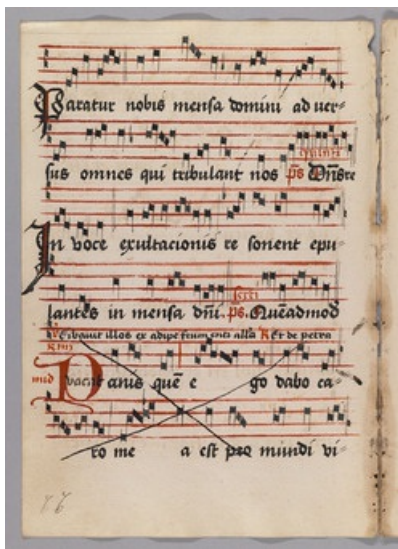 Paratur nobis mensa domini ad uer-
sus omnes qui tribulant nos ps Dn̄s re
In voce exultacionis re sonent epu-
lantes in mensa dn̄i. ps. Quēadmod
Cibauit illos ex adipe frumenti alla R Et de petra
vacat anis quē e go dabo ca-
ro me a est pro mundi vi-
26